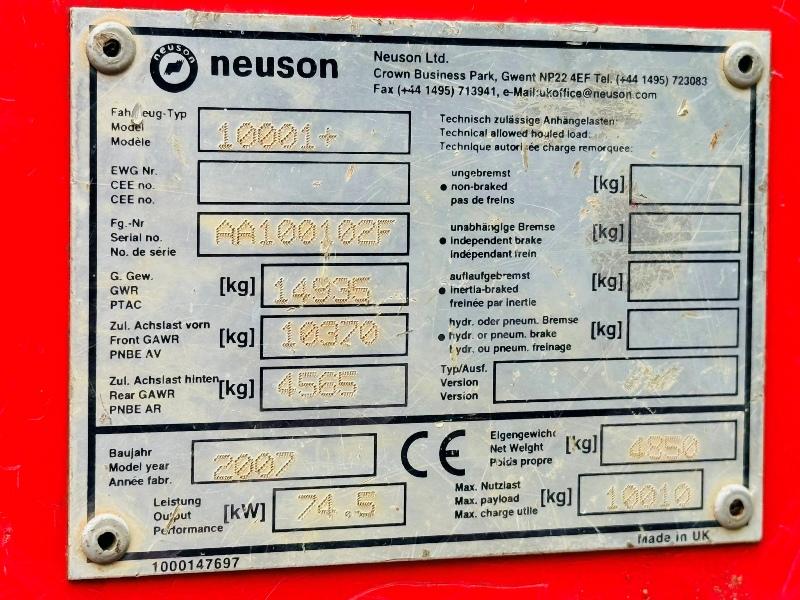 neuson
neuson
Neuson Ltd.
Crown Business Park, Gwent NP22 4EF Tel. (+44 1495) 723083
Fax (+44 1495) 713941, e-Mail:ukoffice@neuson.com
Fahrzeug-Typ
Model
Modèle
10001+
EWG Nr.
CEE no.
CEE no.
Fg.-Nr
Serial no.
No. de série
AA100102F
G. Gew.
GWR
PTAC
[kg]
14935
Zul. Achslast vorn
Front GAWR
PNBE AV
[kg]
10370
Zul. Achslast hinten
Rear GAWR
PNBE AR
[kg]
4565
Technisch zulässige Anhängelasten:
Technical allowed houled load:
Technique autorisée charge remorquée:
ungebremst
non-braked
pas de freins
[kg]
unabhängige Bremse
independent brake
indépendant frein
[kg]
auflaufgebremst
inertia-braked
freinée par inertie
[kg]
hydr. oder pneum. Bremse
hydr. or pneum. brake
hydr. ou pneum. freinage
[kg]
Typ/Ausf.
Version
Version
Baujahr
Model year
Année fabr.
2007
CE
Leistung
Output
Performance
[kW]
74.5
Eigengewicht
Net Weight
Poids propre
[kg]
4850
Max. Nutzlast
Max. payload
Max. charge utile
[kg]
10010
1000147697
Made in UK